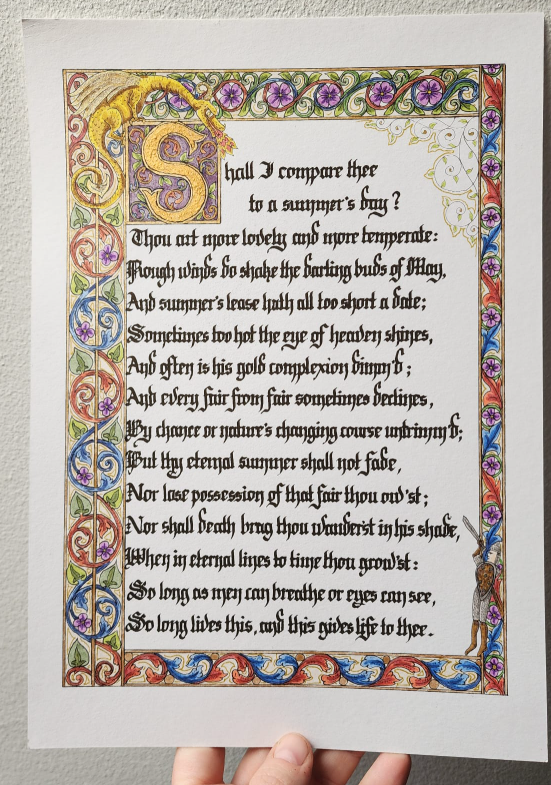 Shall I compare thee
to a summer's day?
Thou art more lovely and more temperate:
Rough winds do shake the darling buds of May,
And summer's lease hath all too short a date;
Sometimes too hot the eye of heaven shines,
And often is his gold complexion dimm'd;
And every fair from fair sometimes declines,
By chance or nature's changing course untrimm'd;
But thy eternal summer shall not fade,
Nor lose possession of that fair thou ow'st;
Nor shall death brag thou wanderst in his shade,
When in eternal lines to time thou grow'st:
So long as men can breathe or eyes can see,
So long lives this, and this gives life to thee.